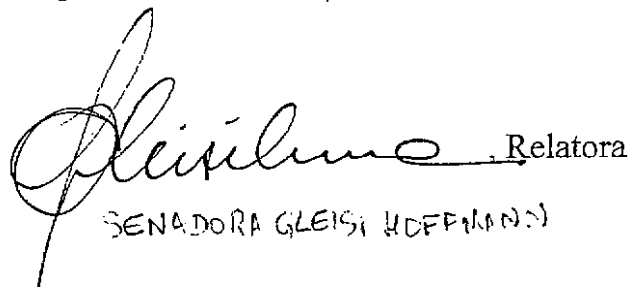 , Relatora
SENADORA GLEISI HOFFMANN